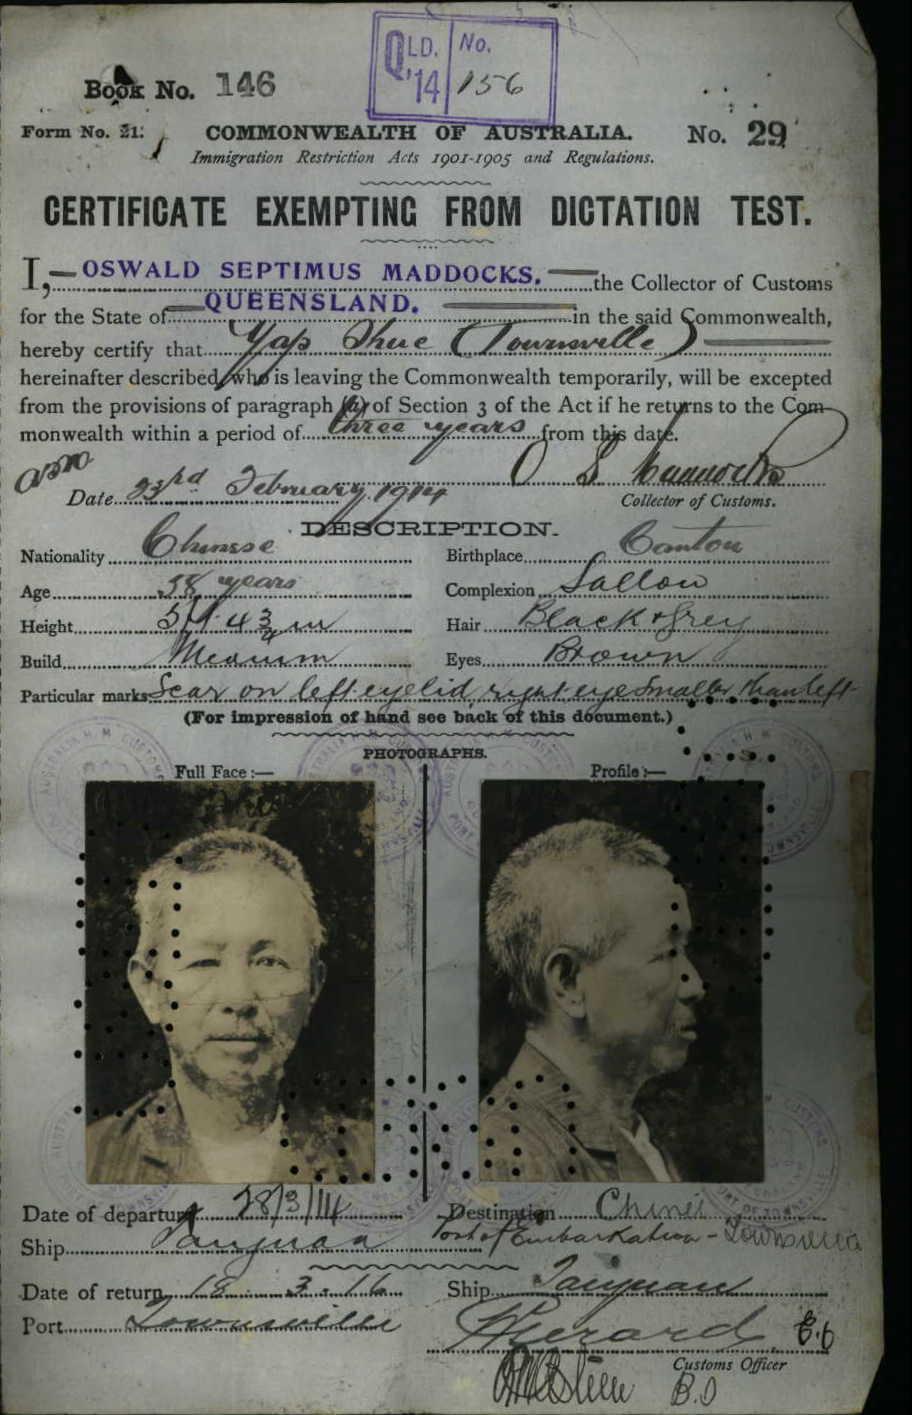 QLD. No.
'14 156
Book No. 146
Form No. 21. COMMONWEALTH OF AUSTRALIA. No. 29
Immigration Restriction Acts 1901-1905 and Regulations.
CERTIFICATE EXEMPTING FROM DICTATION TEST.
I, OSWALD SEPTIMUS MADDOCKS. the Collector of Customs
for the State of QUEENSLAND. in the said Commonwealth,
hereby certify that Yap Shue (Townsville)
hereinafter described, who is leaving the Commonwealth temporarily, will be excepted
from the provisions of paragraph (a) of Section 3 of the Act if he returns to the Com-
monwealth within a period of three years from this date.
O S Maddocks
Date 23rd February 1914 Collector of Customs.
DESCRIPTION.
Nationality Chinese Birthplace Canton
Age 58 years Complexion Sallow
Height 5ft 4¾ in Hair Black & Grey
Build Medium Eyes Brown
Particular marks Scar on left eyelid, right eye smaller than left
(For impression of hand see back of this document.)
PHOTOGRAPHS.
Full Face :— Profile :—
Date of departure 28/3/14 Destination China
Ship Taiyuan Port of Embarkation - Townsville
Date of return 18.3.16 Ship Taiyuan
Port Townsville
Customs Officer
B.O